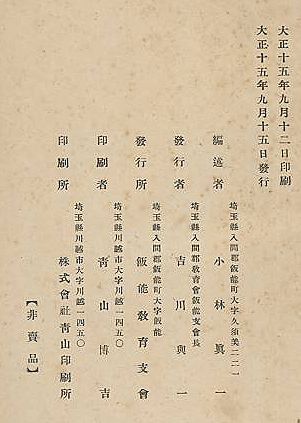 大正十五年九月十二日印刷
大正十五年九月十五日發行
埼玉縣入間郡飯能町大字久須美二二一
編述者 小林眞一
埼玉縣入間郡敎育會飯能支會長
發行者 吉川與一
埼玉縣入間郡飯能町大字飯能
發行所 飯能敎育支會
埼玉縣川越市大字川越一四五〇
印刷者 靑山博吉
埼玉縣川越市大字川越一四五〇
印刷所 株式會社靑山印刷所
【非賣品】